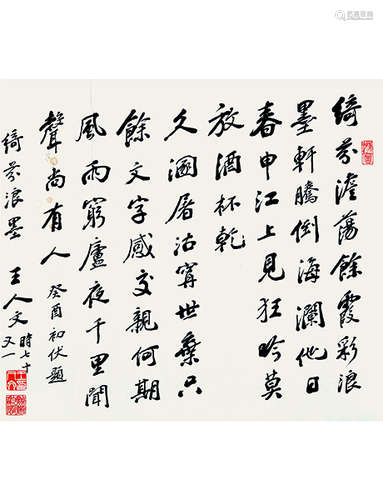 绮芬澹荡餘霞彩浪
墨軒騰倒海瀾他日
春申江上見狂吟莫
放酒杯乾
久溷屠沽寄世槃只
餘文字感交親何期
風雨窮廬夜千里聞
聲尚有人
癸酉初伏題
绮芬浪墨 王人文 時七十
又一